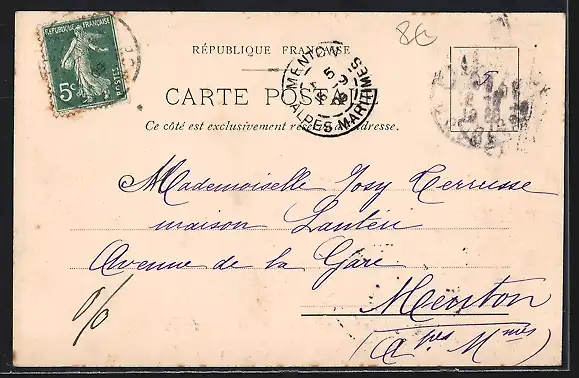 RÉPUBLIQUE FRANÇAISE
POSTES
5c
86
RÉPUBLIQUE FRANÇAISE
MENTON
5
ALPES-MARITIMES
CARTE POSTALE
Ce côté est exclusivement réservé à l'adresse.
Mademoiselle Josy Cerrusse
maison Lanteri
Avenue de la Gare
Menton
(Apes Mmes)
%